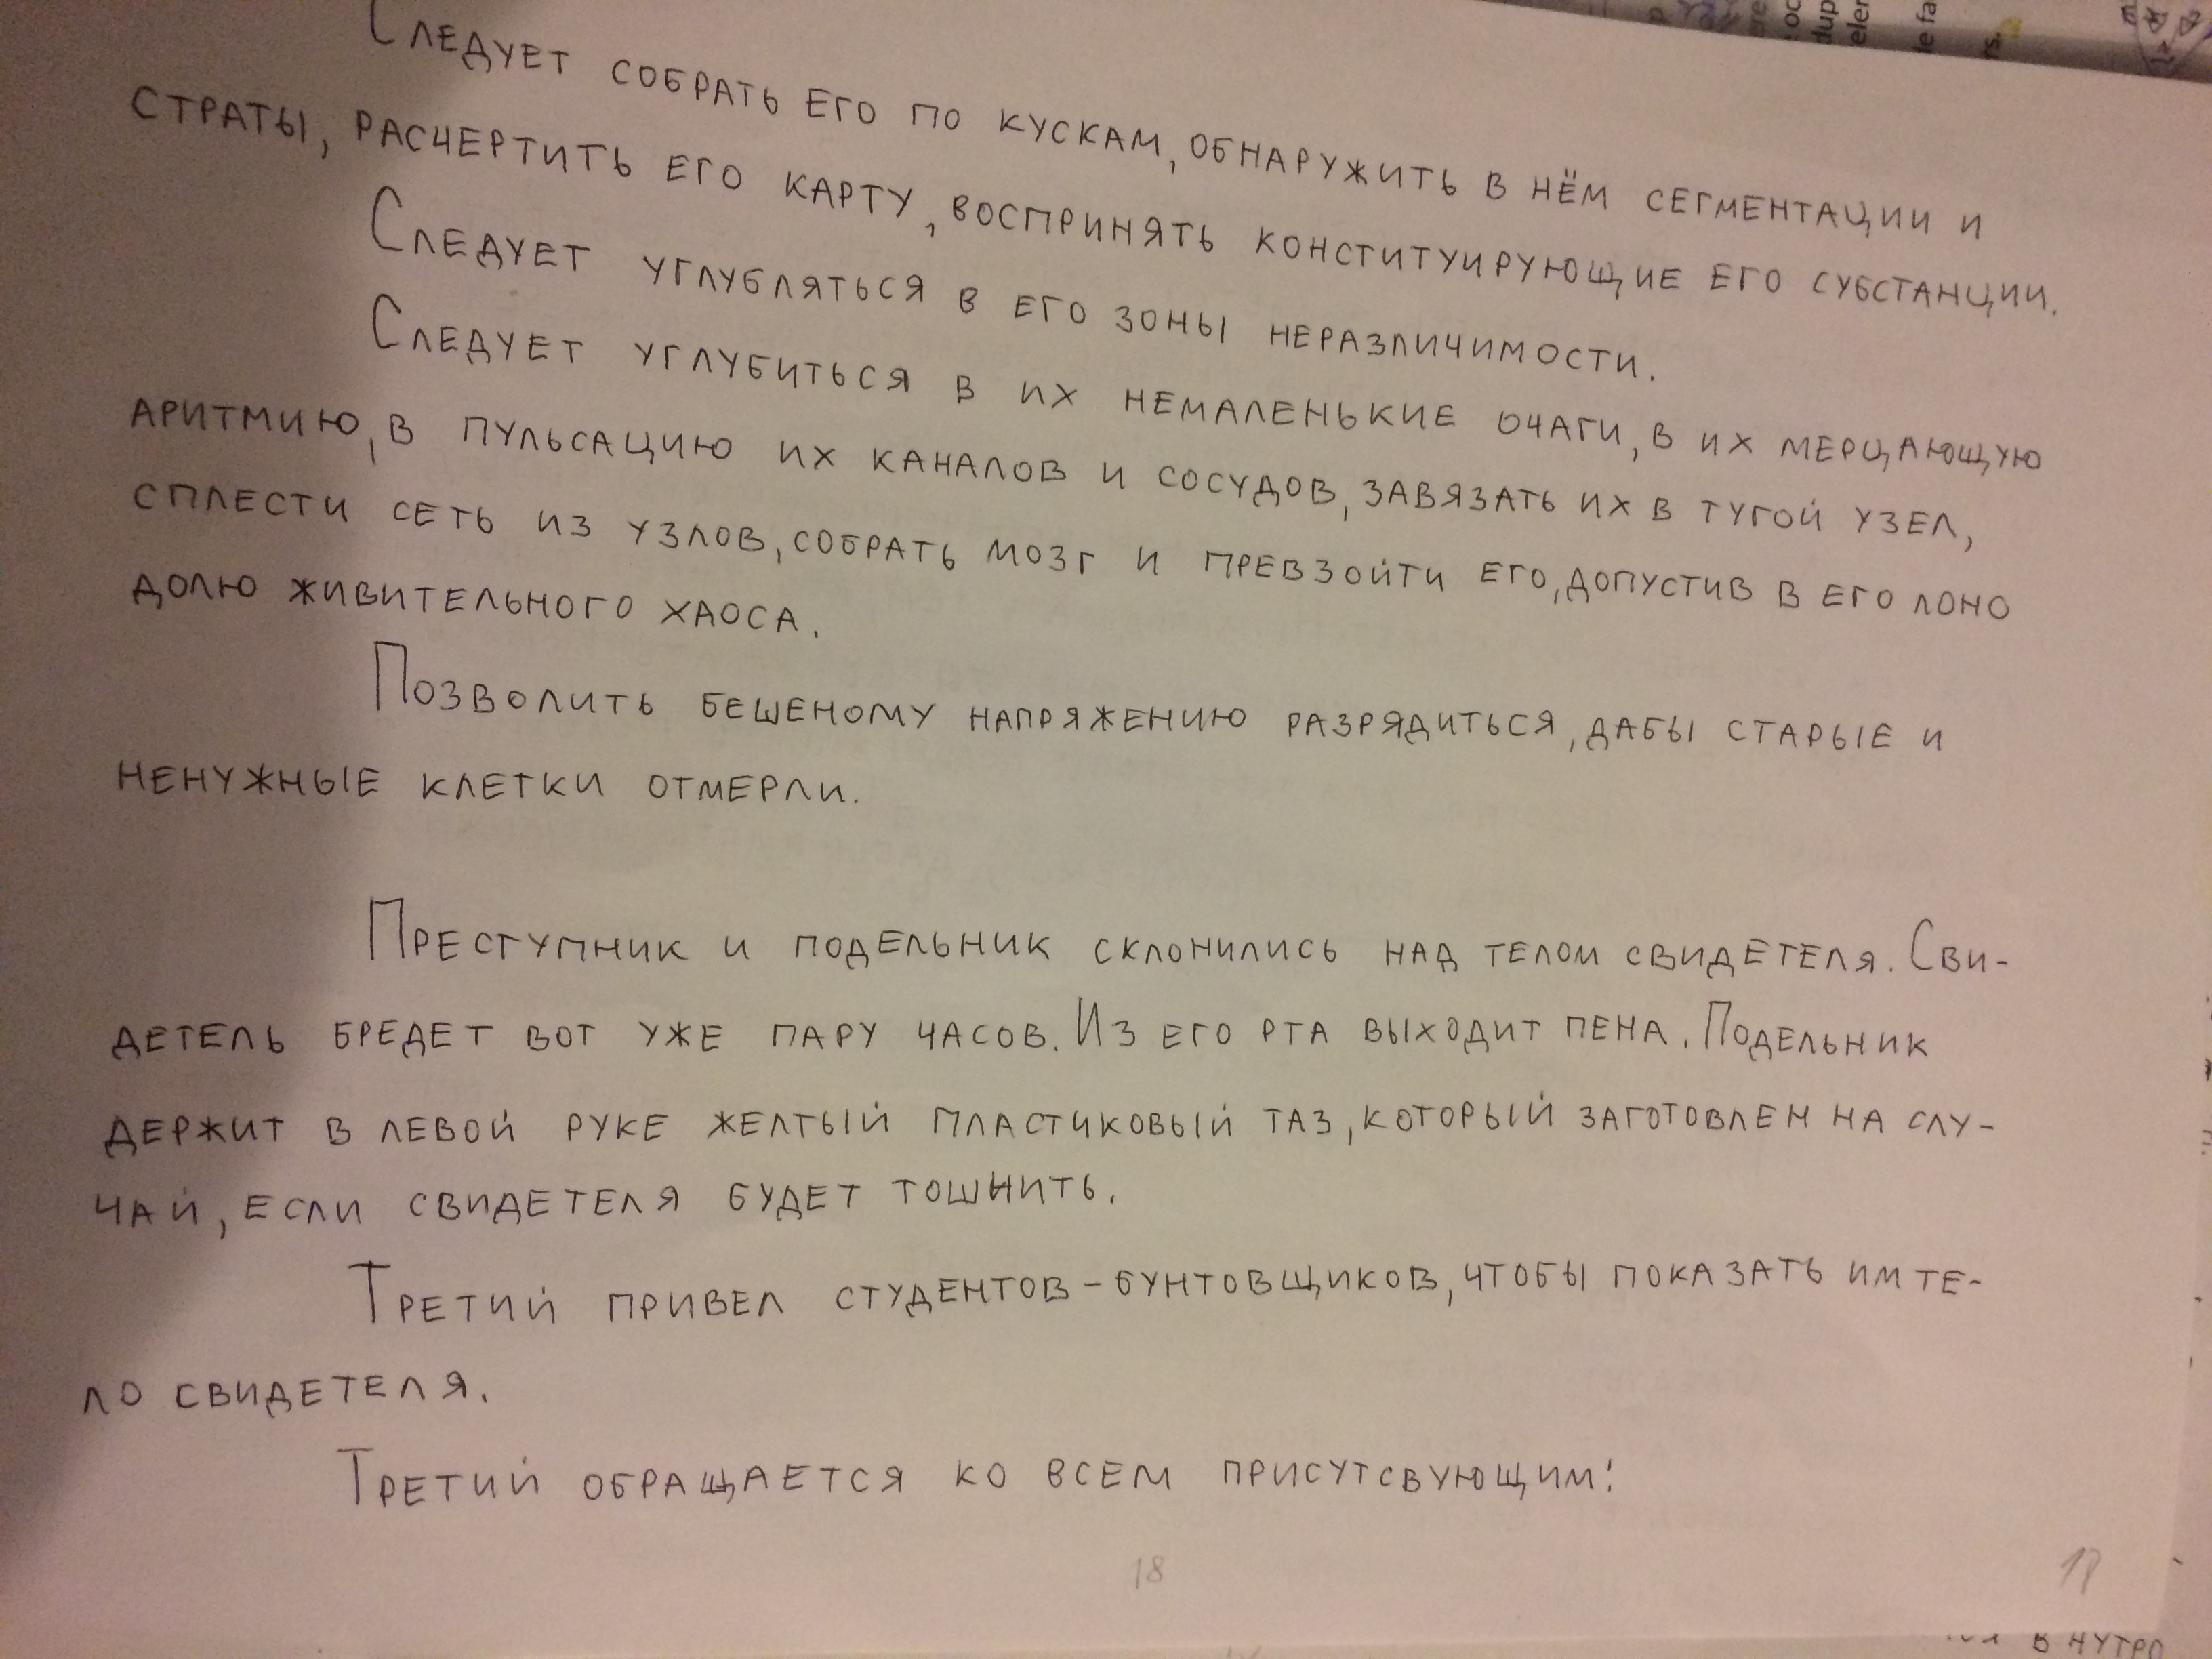 Следует собрать его по кускам, обнаружить в нём сегментации и
страты, расчертить его карту, воспринять конституирующие его субстанции.
Следует углубляться в его зоны неразличимости.
Следует углубиться в их немаленькие очаги, в их мерцающую
аритмию, в пульсацию их каналов и сосудов, завязать их в тугой узел,
сплести сеть из узлов, собрать мозг и превзойти его, допустив в его лоно
долю живительного хаоса.
Позволить бешеному напряжению разрядиться, дабы старые и
ненужные клетки отмерли.
Преступник и подельник склонились над телом свидетеля. Сви-
детель бредет вот уже пару часов. Из его рта выходит пена. Подельник
держит в левой руке желтый пластиковый таз, который заготовлен на слу-
чай, если свидетеля будет тошнить.
Третий привел студентов-бунтовщиков, чтобы показать им те-
ло свидетеля.
Третий обращается ко всем присутсвующим:
18
18
внутро